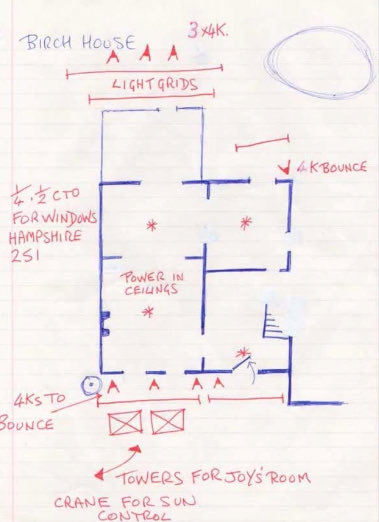 BIRCH HOUSE
3x4K.
LIGHTGRIDS
4K BOUNCE
1/4 · 1/2 CTO
FOR WINDOWS
HAMPSHIRE
251
POWER IN
CEILINGS
4Ks TO
BOUNCE
TOWERS FOR JOY'S ROOM
CRANE FOR SUN
CONTROL